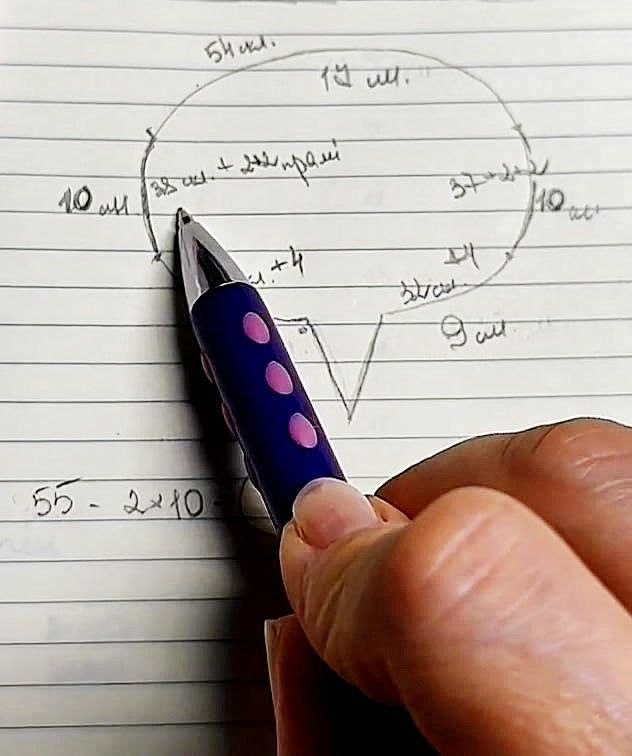 54 см.
17 см.
38 см. + 2+2 прямі
37+2+2
10 см
10 см
+4
+4
32 см.
9 см.
55 - 2×10 -